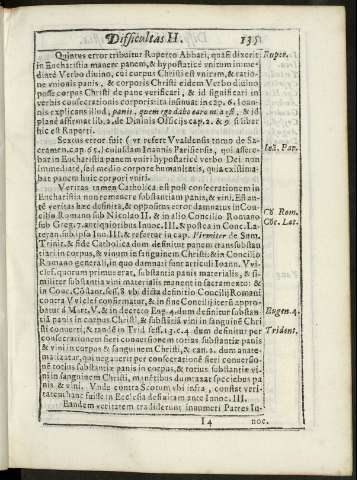 Difficultas II. 135
Quintus error tribuitur Ruperto Abbati, quasi dixerit
in Eucharistia manere panem, & hypostaticè vnitum imme
diatè Verbo diuino, cui corpus Christi est vnitum, & ratio-
ne vnionis panis, & corporis Christi eidem Verbo diuino
posse corpus Christi de pane verificari, & id significari in
verbis consecrationis corporis ita insinuat in cap. 6. Ioan-
nis explicans illud, panis, quem ego dabo caro mea est, & id
planè affirmat lib. 2. de Diuinis Officijs cap. 2. & 9. si liber
hic est Ruperti.
Sextus error fuit (vt refert Vvaldensis tomo de Sa-
cramen. cap. 65.) cuiusdam Ioannis Parisiensis, qui asserebat
in Eucharistia panem vniri hypostaticè verbo Dei non
immediatè, sed medio corpore humanitatis, quia existima-
bat panem huic corpori vniri.
Veritas tamen Catholica est post consecrationem in
Eucharistia non remanere substantiam panis, & vini. Est au-
tē veritas hæc definita, & oppositus error damnatus in Con-
cilio Romano sub Nicolao II. & in alio Concilio Romano
sub Greg. 7. antiquioribus Innoc. III. & postea in Conc. La-
teran. sub ipso Inn. III. & refertur in cap. Firmiter de Sum.
Trinit. & fide Catholica dum definitur panem transubstan-
tiari in corpus, & vinum in sanguinem Christi; & in Concilio
Romano generali, in quo damnati sunt articuli Ioann. Vvi-
clef. quorum primus erat, substantia panis materialis, & si-
militer substantia vini materialis manent in sacramento: &
in Conc. Cōstant. sess. 8. vbi dicta definitio Concilij Romani
contra Vviclef confirmatur; & in fine Concilij ipsa approba-
batur à Mart. V. & in decreto Eug. 4. dum definitur substan-
tia panis in corpus Christi, & substātia vini in sanguinē Chri
sti conuerti, & tandē in Trid. sess. 13. c. 4. dum definitur per
consecrationem fieri conuersionem totius substantiæ panis
& vini in corpus & sanguinem Christi, & can. 2. dum anate-
matizatur, qui negauerit per consecrationē fieri conuersio-
nē totius substantiæ panis in corpus, & totius substantiæ vi-
ni in sanguinem Christi, manētibus dumtaxat speciebus pa
nis & vini. Vnde contra Scotum vbi infra, constat veri-
tatem hanc fuisse in Ecclesia definitam ante Innoc. III.
Eandem veritatem tradiderunt innumeri Patres In-
I 4 noc.
Ruper.
Ioā. Par.
Cō. Rom.
Cōc. Lat.
Eugen. 4.
Trident.